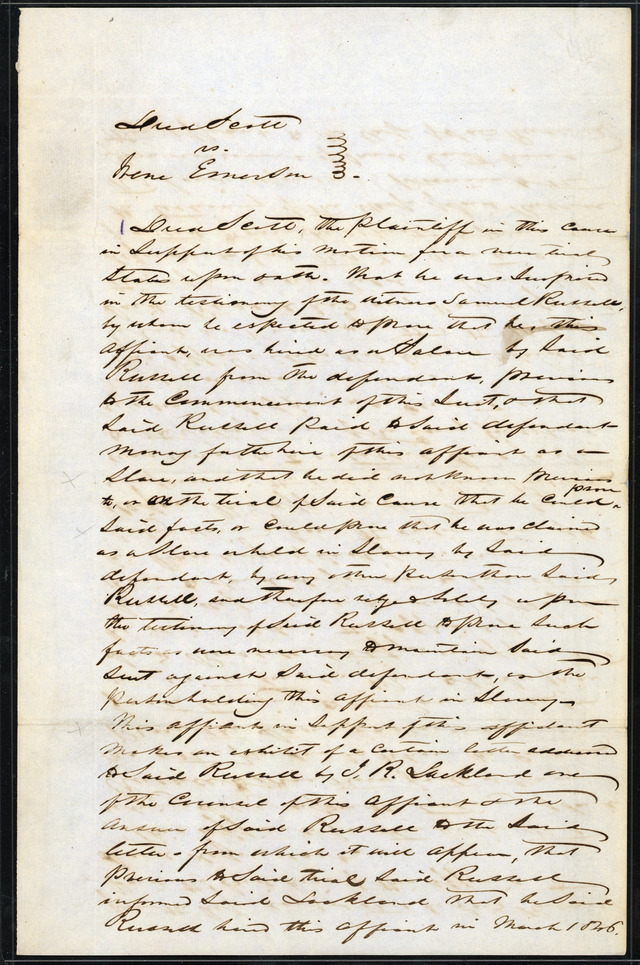 Dred Scott
vs.
Irene Emerson
Dred Scott, the Plaintiff in this cause
in Support of his motion for a new trial
States upon oath. That he was Surprised
in the testimony of the witness Samuel Russell,
by whom he expected to prove that he, this
affiant, was hired as a Slave by Said
Russell from the defendant, previous
to the Commencement of this Suit, & that
Said Russell Paid to Said defendant
money for the hire of this affiant as a
Slave, and that he did not know previous
to, or on the trial of Said Cause that he could prove
Said facts, or could prove that he was claimed
as a Slave or held in Slavery by Said
defendant, by any other person than Said
Russell, and therefore relied Solely upon
the testimony of Said Russell to prove Such
facts as were necessary to maintain Said
Suit against Said defendant, as the
person holding this affiant in Slavery
This affiant in Support of this affidavit
makes an exhibit of a certain letter addressed
to Said Russell by J. R. Lackland one
of the Counsel of this affiant & the
answer of Said Russell to the Said
letter - from which it will appear, that
previous to Said trial Said Russell
informed Said Lackland that he Said
Russell hired this affiant in March 1846.